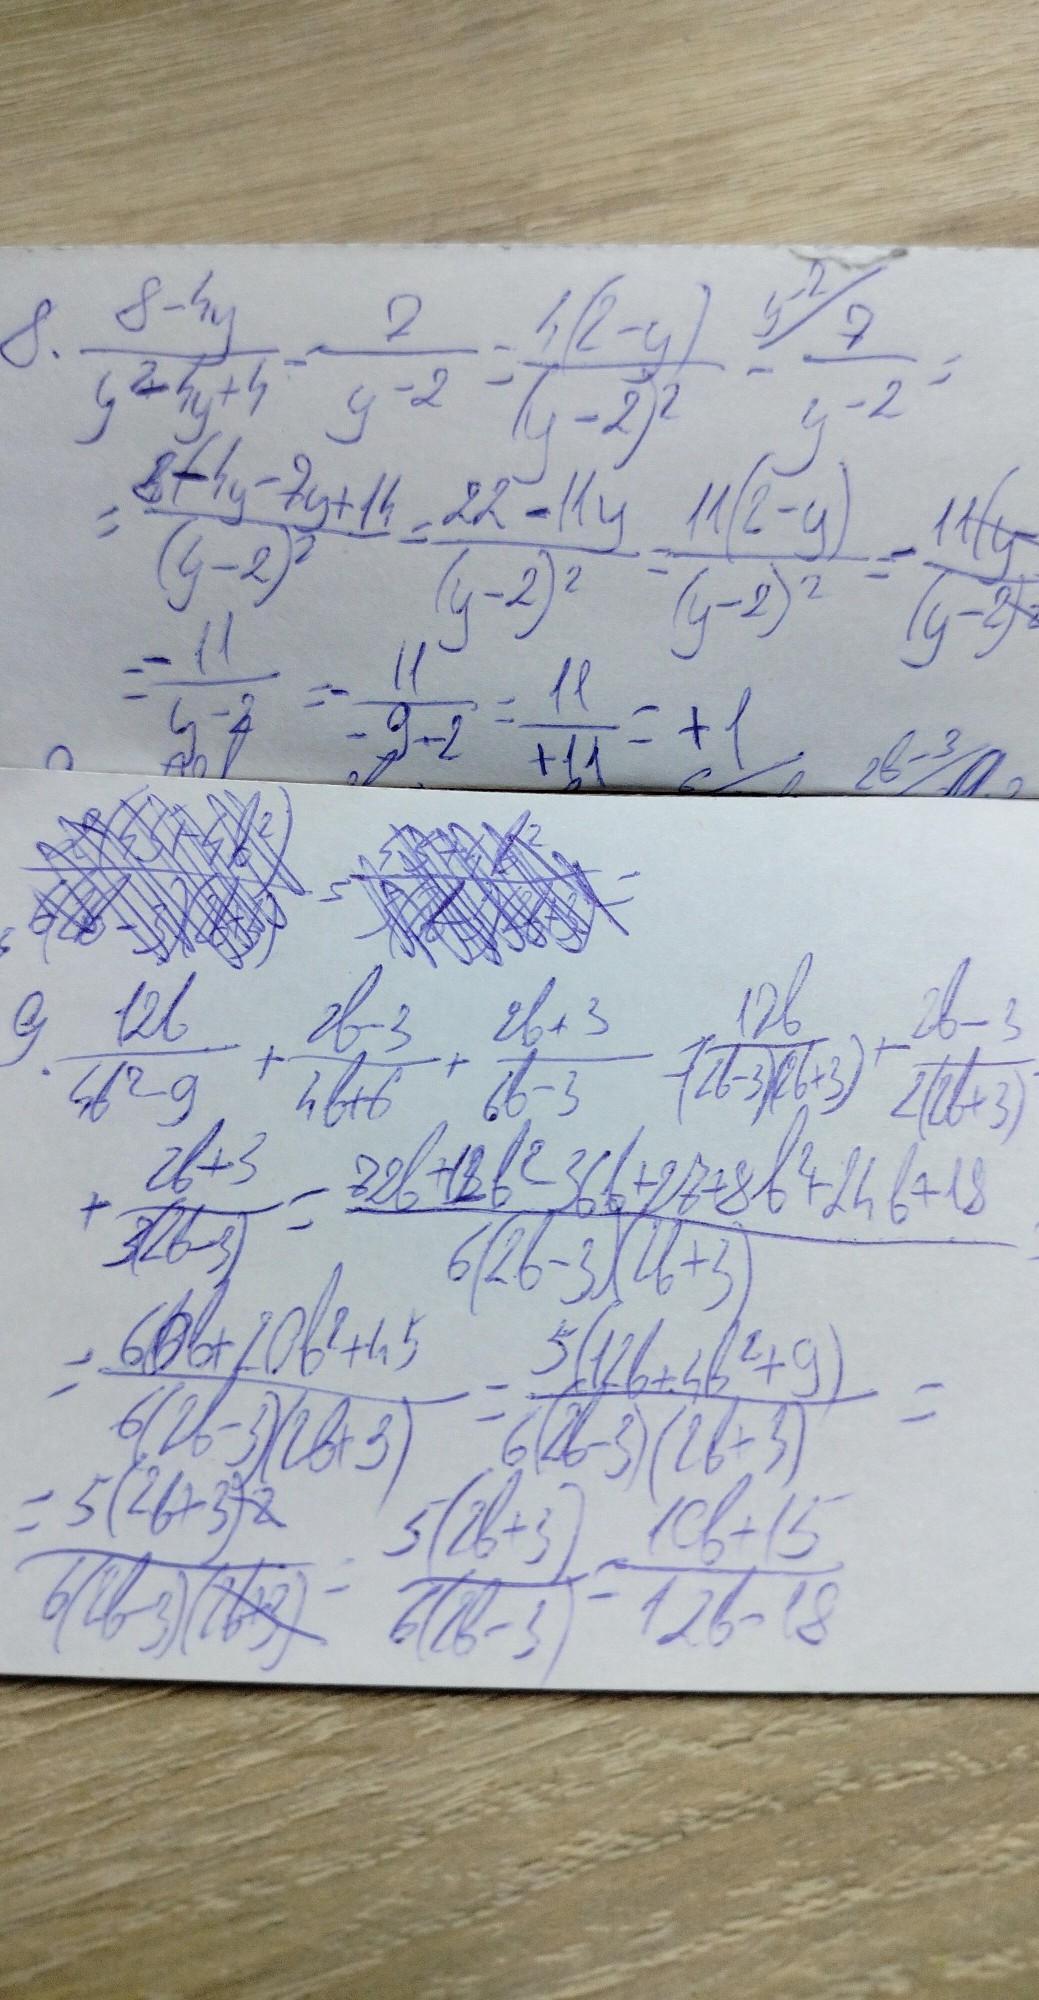 8. (8-4y)/(y²-4y+4) - 7/(y-2) = 4(2-y)/(y-2)² - y-2/ 7/(y-2) =
= (8-4y-7y+14)/(y-2)² = (22-11y)/(y-2)² = 11(2-y)/(y-2)² = - 11(y-/(y-2)²
= - 11/(y-2) = - 11/(-9-2) = 11/+11 = +1
2b-3/
9. 12b/(4b²-9) + (2b-3)/(4b+6) + (2b+3)/(6b-3) = 12b/(2b-3)(2b+3) + (2b-3)/2(2b+3)
+ (2b+3)/3(2b-3) = (72b+12b²-36b+27+8b²+24b+18)/6(2b-3)(2b+3)
= (60b+20b²+45)/6(2b-3)(2b+3) = 5(12b+4b²+9)/6(2b-3)(2b+3) =
= 5(2b+3)²/6(2b-3)(2b+3) = 5(2b+3)/6(2b-3) = (10b+15)/(12b-18)